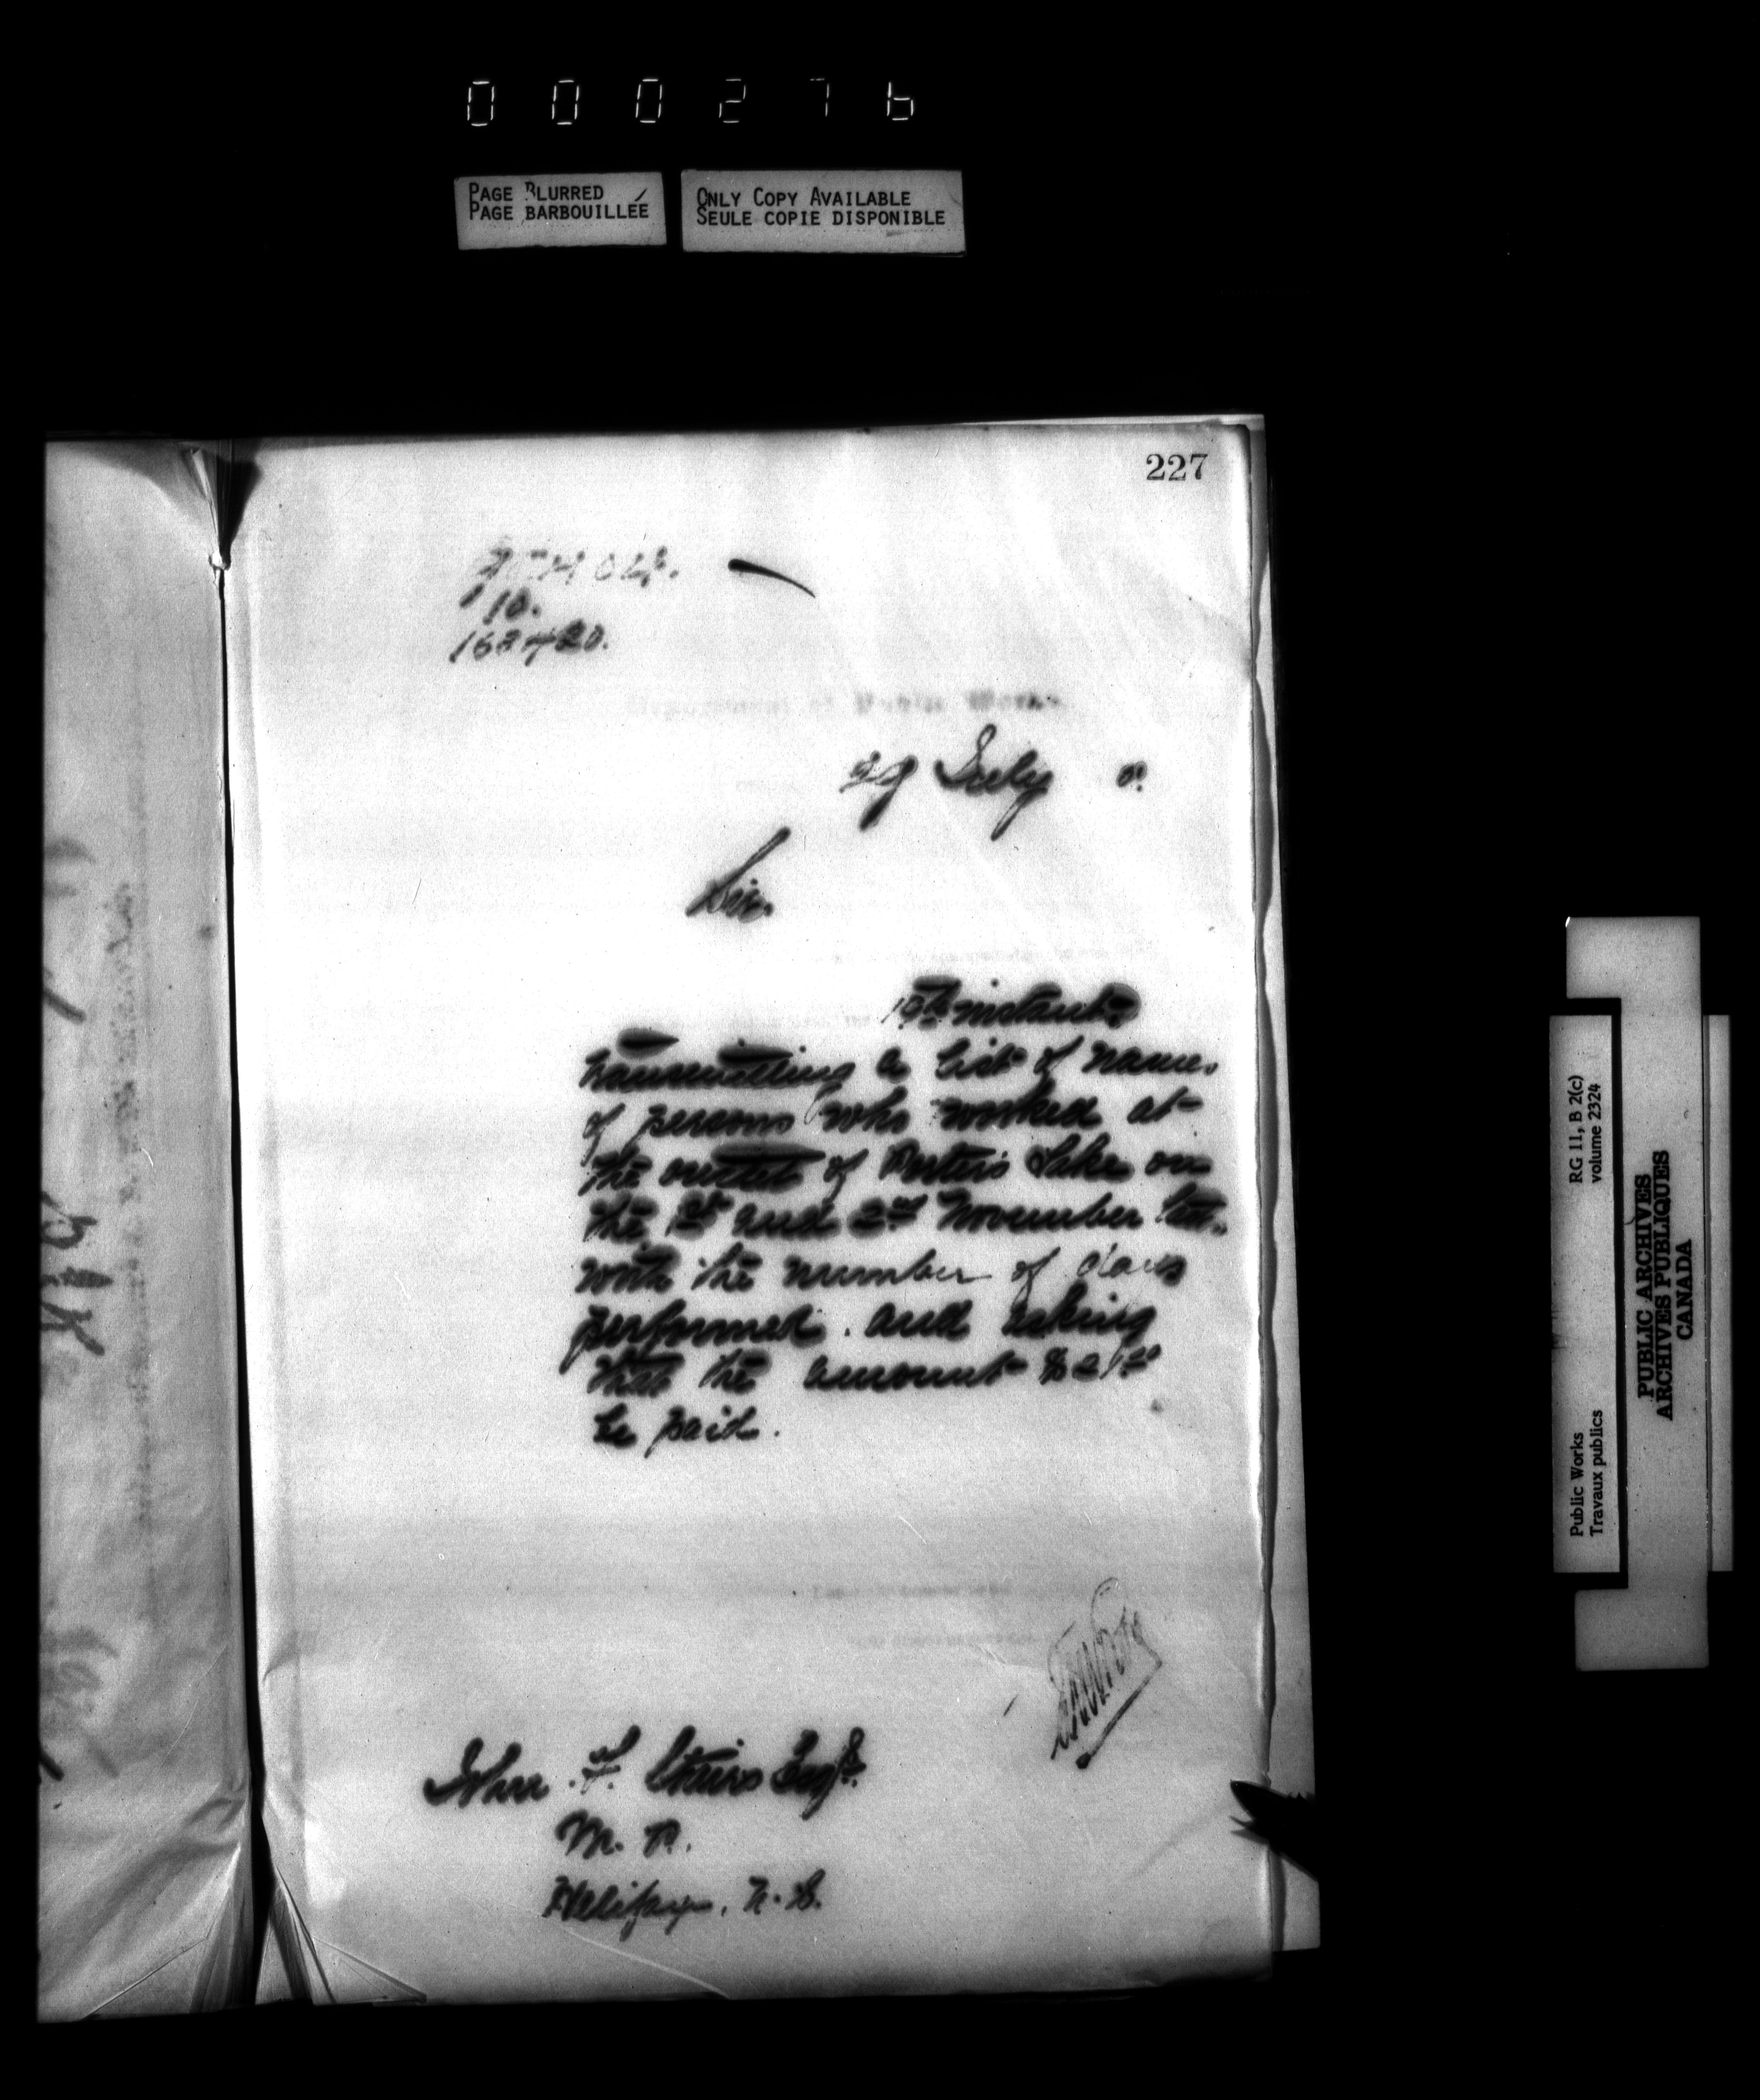 000276
PAGE BLURRED
PAGE BARBOUILLÉE
ONLY COPY AVAILABLE
SEULE COPIE DISPONIBLE
227
10.
162420.
Department of Public Works
29 July
Sir.
19th instant
transmitting a list of names
of persons who worked at
the outlet of Porter's Lake on
the 1st and 2nd November last
with the number of days
performed. and asking
that the amount $21.00
be paid.
John F. Stairs Esqr.
M. P.
Halifax, N. S.
Public Works
Travaux publics
RG 11, B 2(c)
volume 2324
PUBLIC ARCHIVES
ARCHIVES PUBLIQUES
CANADA